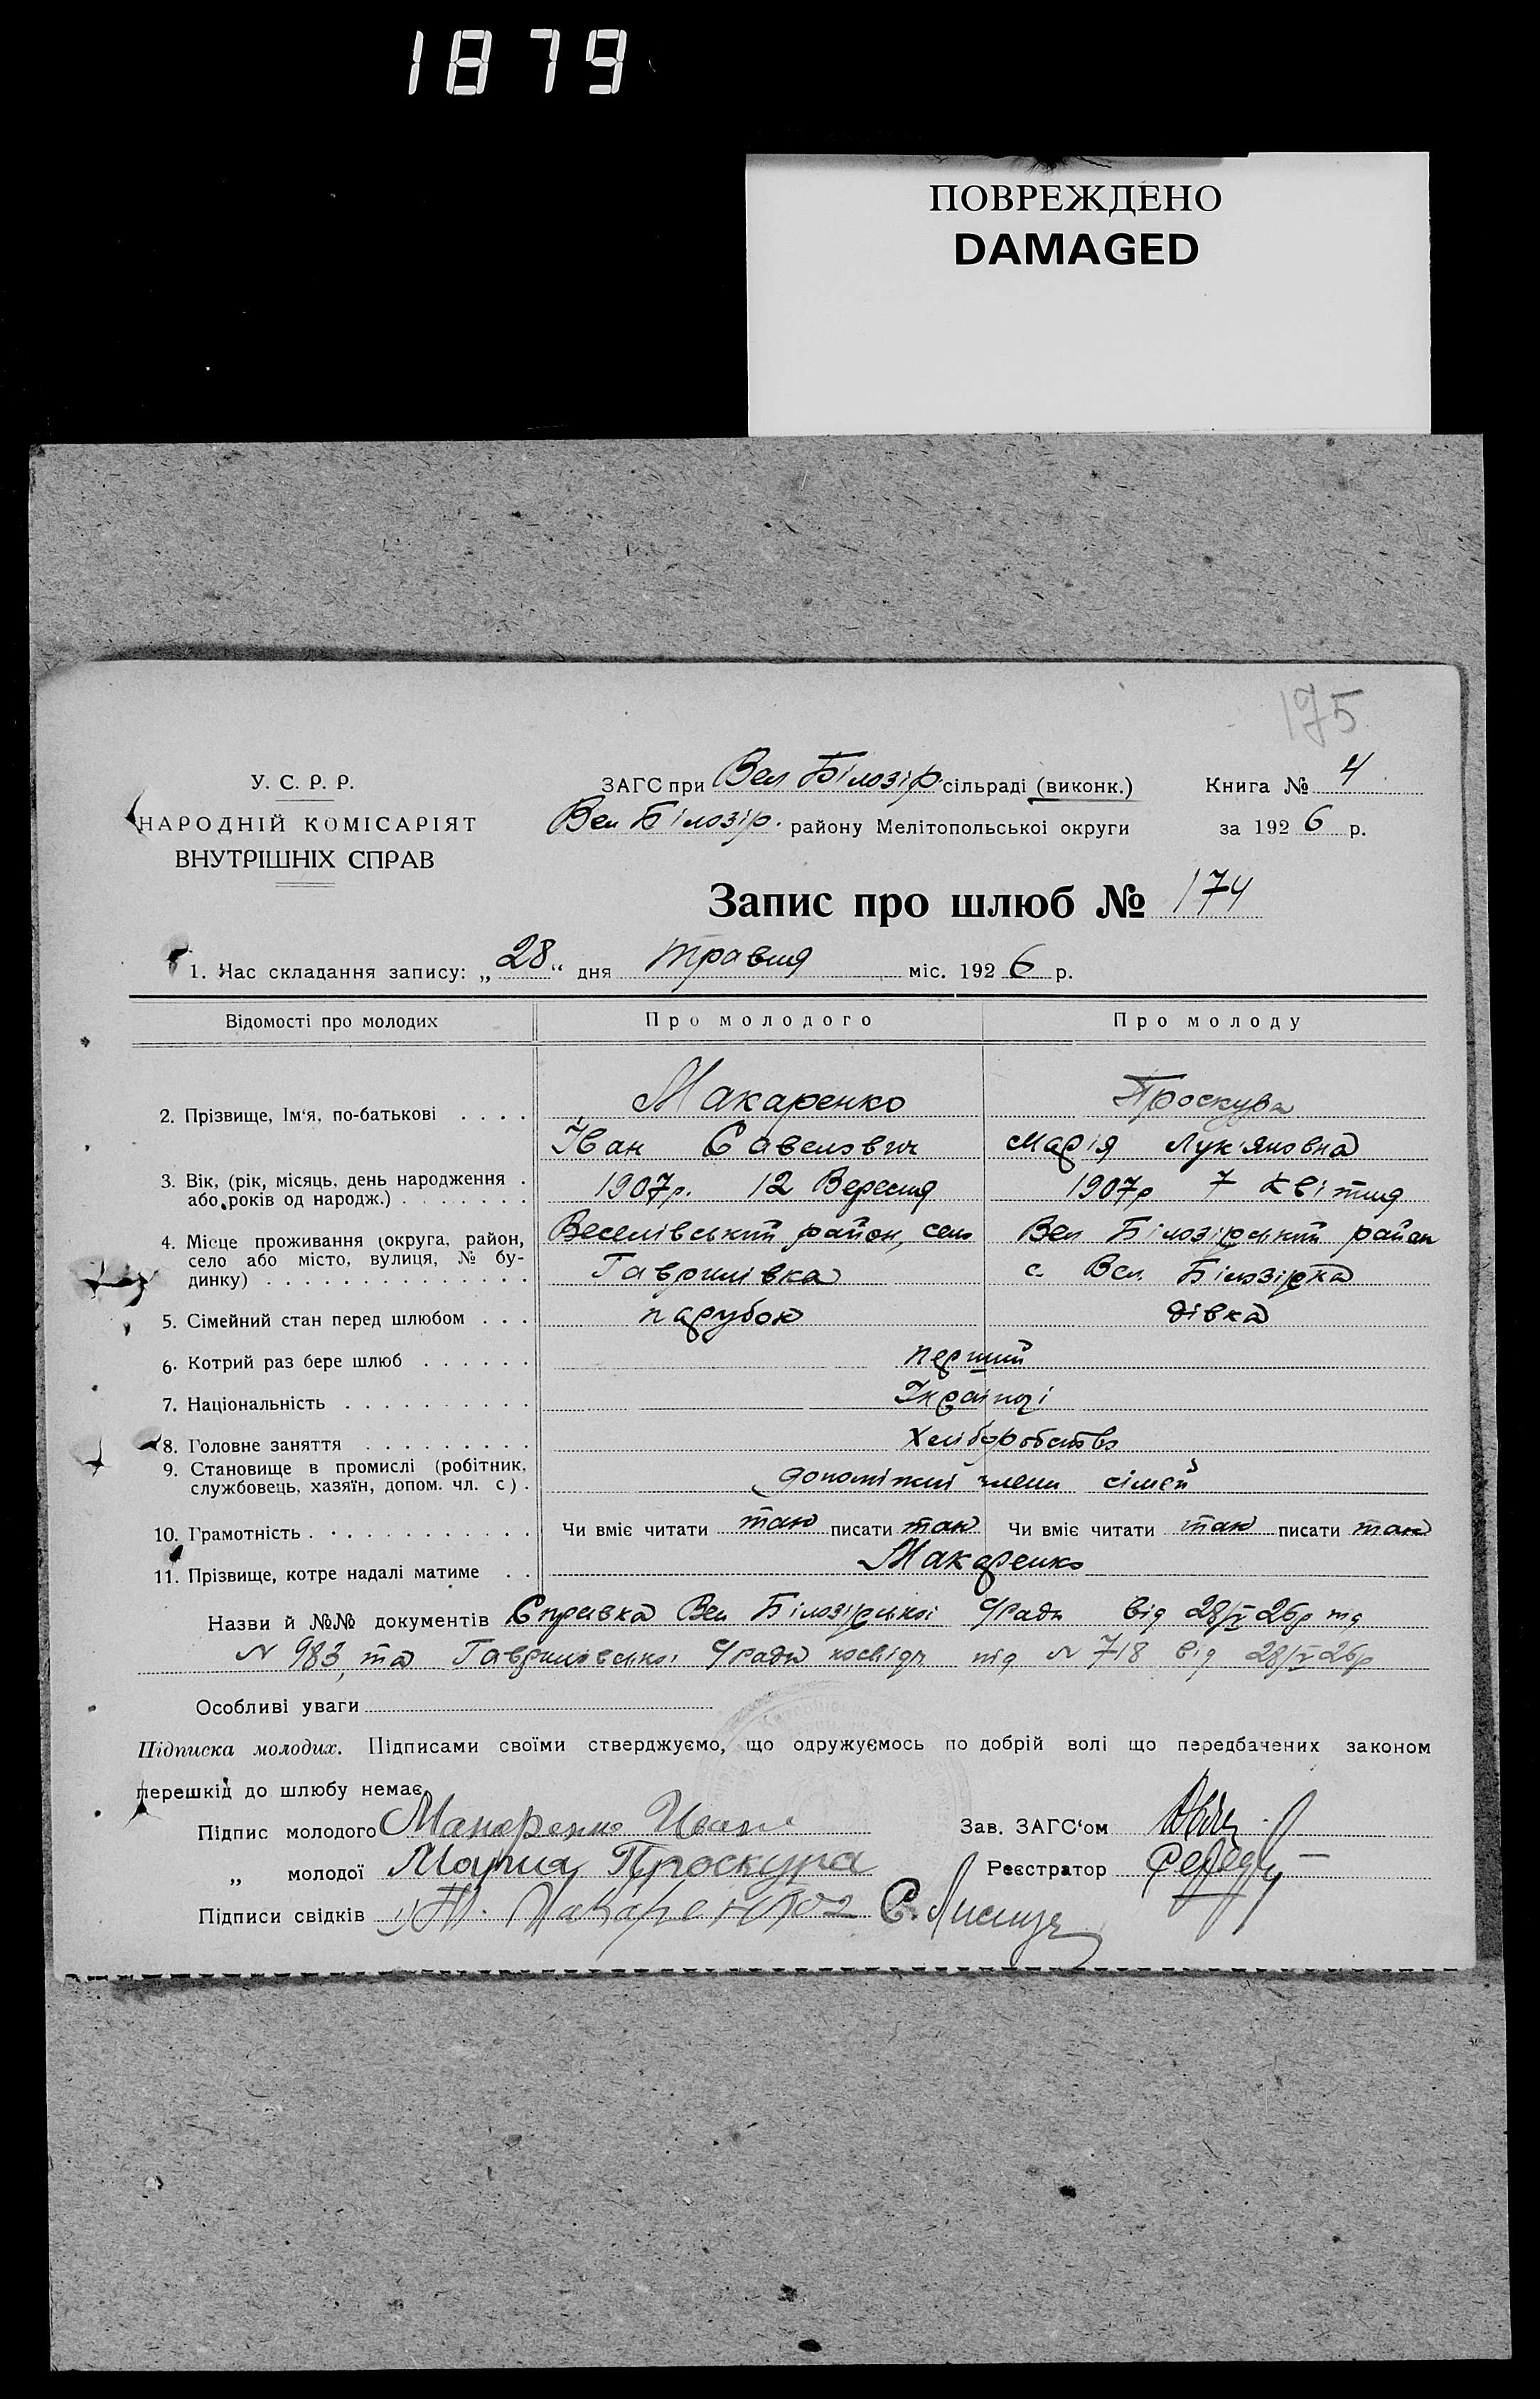 1879
ПОВРЕЖДЕНО
DAMAGED
175
У. С. Р. Р.
НАРОДНІЙ КОМІСАРІЯТ
ВНУТРІШНІХ СПРАВ
ЗАГС при Вел Білозір. сільраді (виконк.)
Вел Білозір. району Мелітопольської округи
Книга № 4
за 1926 р.
Запис про шлюб № 174
1. Час складання запису: „28“ дня травня міс. 1926 р.
Відомості про молодих Про молодого Про молоду
2. Прізвище, Ім‘я, по-батькові . . . . Макаренко Проскура
Іван Савелович Марія Лук'яновна
3. Вік, (рік, місяць, день народження .
або років од народж.) . . . . . . . 1907р. 12 Вересня 1907р 7 Квітня
4. Місце проживання (округа, район,
село або місто, вулиця, № бу-
динку) . . . . . . . . . . . . . .
Веселівський район, село Вел Білозірський район
Гаврилівка с. Вел. Білозірка
5. Сімейний стан перед шлюбом . . . парубок дівка
6. Котрий раз бере шлюб . . . . . . перший
7. Національність . . . . . . . . . . Українці
8. Головне заняття . . . . . . . . . Хліборобство
9. Становище в промислі (робітник,
службовець, хазяїн, допом. чл. с) . допоміжні члени сімей
10. Грамотність . . . . . . . . . . . . Чи вміє читати так писати так Чи вміє читати так писати так
11. Прізвище, котре надалі матиме . . Макаренко
Назви й №№ документів Справка Вел Білозірської С/ради від 28/V 26р під
N 983, та Гаврилівської С/ради під N 718 від 28/V 26р
Особливі уваги
Підписка молодих. Підписами своїми стверджуємо, що одружуємось по добрій волі що передбачених законом
перешкід до шлюбу немає.
Підпис молодого Макаренко Иван
Зав. ЗАГС‘ом
„ молодої Мария Проскура
Реєстратор
Підписи свідків